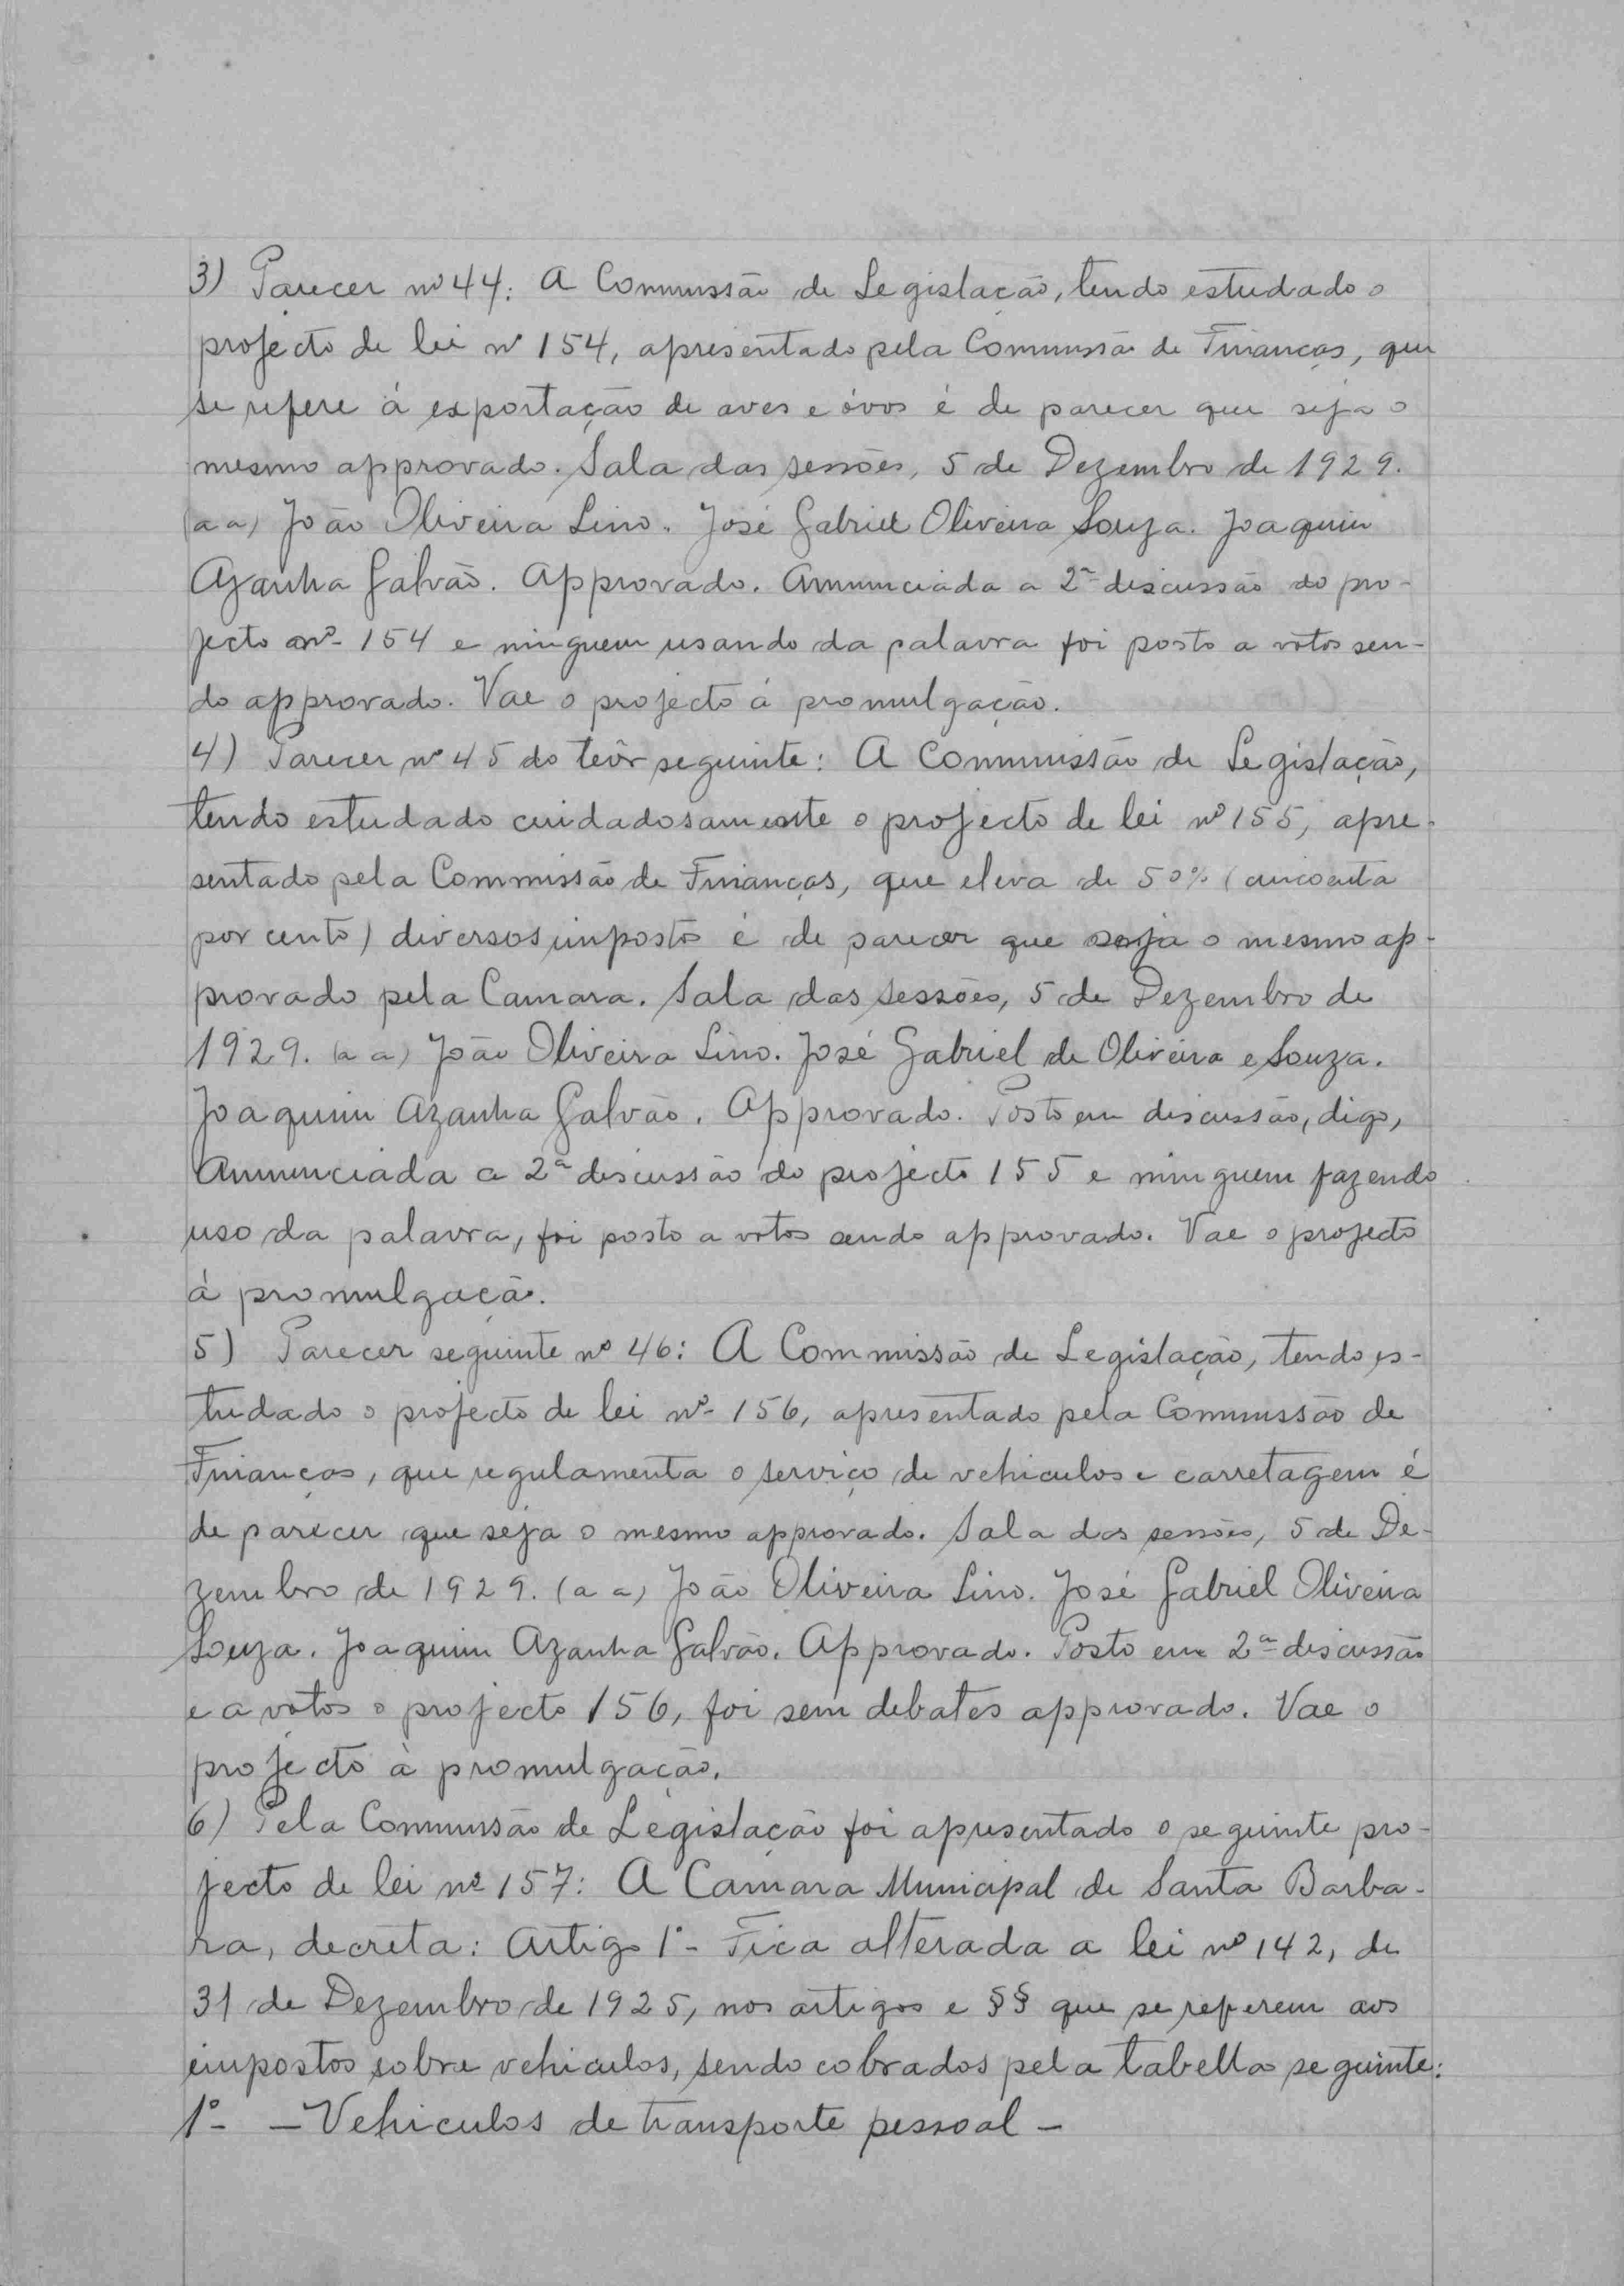 3) Parecer nº 44: A Commissão de Legislação, tendo estudado o
projecto de lei nº 154, apresentado pela Commissão de Finanças, que
se refere á exportação de aves e óvos é de parecer que seja o
mesmo approvado. Sala das sessões, 5 de Dezembro de 1929.
(a a) João Oliveira Lino. José Gabriel Oliveira Souza. Joaquim
Azanha Galvão. Approvado. Annunciada a 2ª discussão do pro-
jecto nº 154 e ninguem usando da palavra foi posto a votos sen-
do approvado. Vae o projecto á promulgação.
4) Parecer nº 45 do teôr seguinte: A Commissão de Legislação,
tendo estudado cuidadosamente o projecto de lei nº 155, apre-
sentado pela Commissão de Finanças, que eleva de 50% (cincoenta
por cento) diversos impostos é de parecer que seja o mesmo ap-
provado pela Camara. Sala das sessões, 5 de Dezembro de
1929. (a a) João Oliveira Lino. José Gabriel de Oliveira e Souza.
Joaquim Azanha Galvão. Approvado. Posto em discussão, digo,
Annunciada a 2ª discussão do projecto 155 e ninguem fazendo
uso da palavra, foi posto a votos sendo approvado. Vae o projecto
á promulgação.
5) Parecer seguinte nº 46: A Commissão de Legislação, tendo es-
tudado o projecto de lei nº 156, apresentado pela Commissão de
Finanças, que regulamenta o serviço de vehiculos e carretagem é
de parecer que seja o mesmo approvado. Sala das sessões, 5 de De-
zembro de 1929. (a a) João Oliveira Lino. José Gabriel Oliveira
Souza. Joaquim Azanha Galvão. Approvado. Posto em 2ª discussão
e a votos o projecto 156, foi sem debates approvado. Vae o
projecto à promulgação.
6) Pela Commissão de Legislação foi apresentado o seguinte pro-
jecto de lei nº 157: A Camara Municipal de Santa Barba-
ra, decreta: Artigo 1º - Fica alterada a lei nº 142, de
31 de Dezembro de 1925, nos artigos e §§ que se referem aos
impostos sobre vehiculos, sendo cobrados pela tabella seguinte:
1º - — Vehiculos de transporte pessoal —